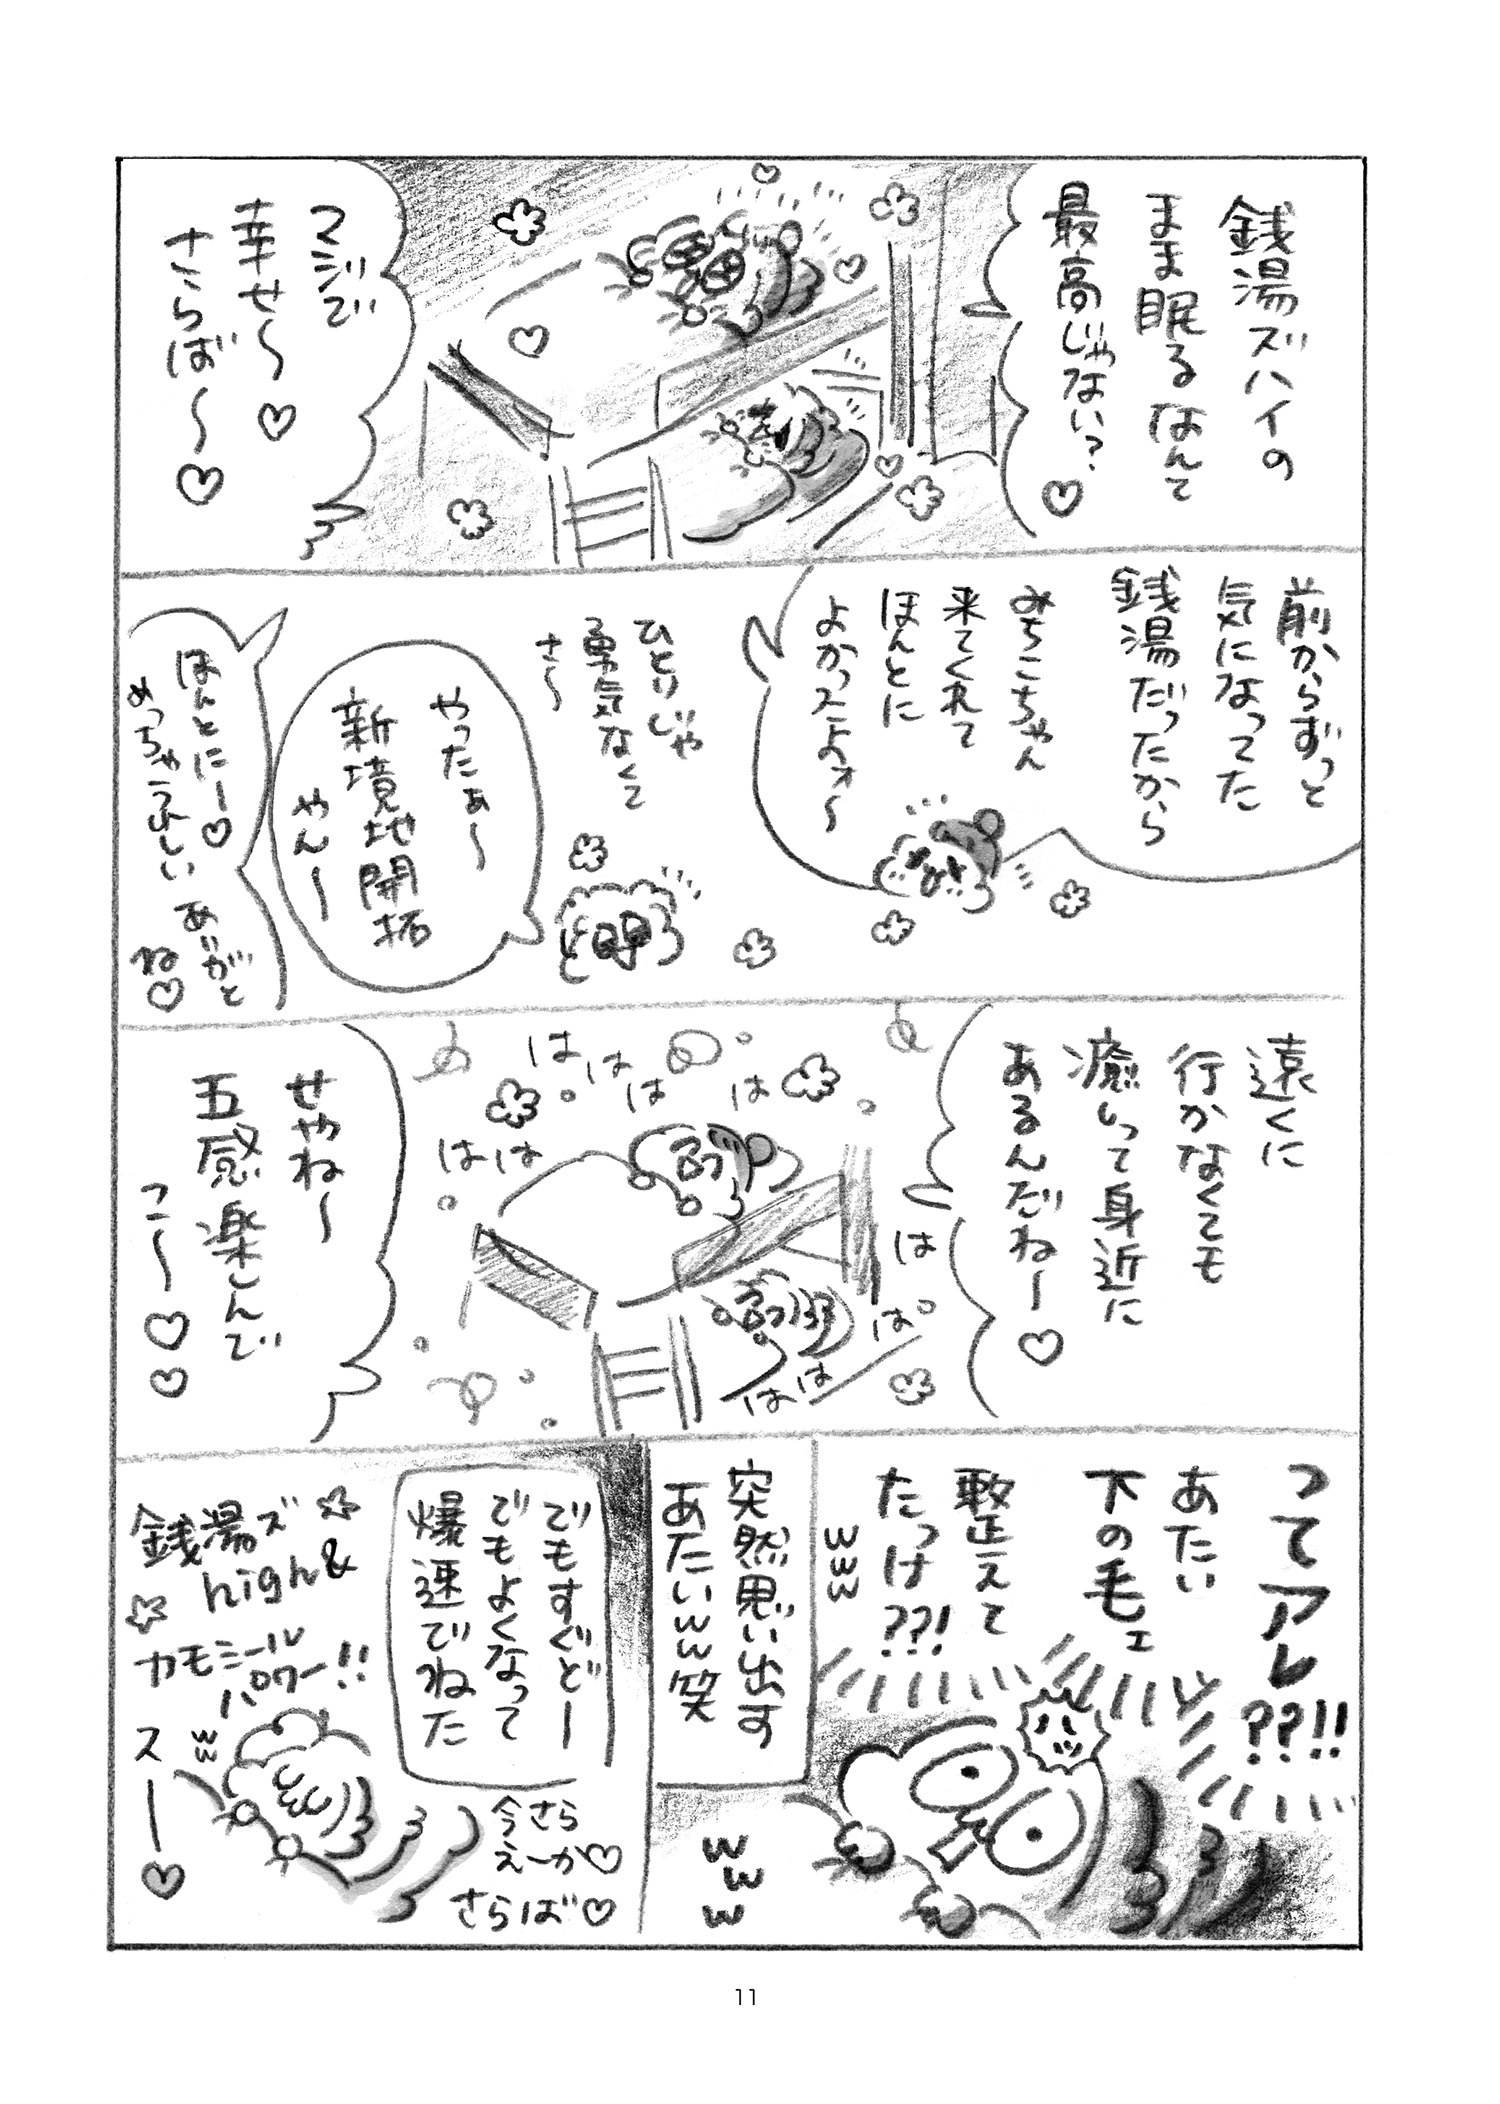 銭湯ズハイの
まま眠るなんて
最高じゃない？♡
マジで
幸せ〜♡
さらば〜♡
前からずっと
気になってた
銭湯だったから
みちこちゃん
来てくれて
ほんとに
よかったよォ〜
ひとりじゃ
勇気なくて
さ〜
やったぁ〜
新境地開拓
やん〜
ほんとにー♡
めっちゃうれしい ありがと
ね♡
遠くに
行かなくても
癒しって身近に
あるんだねー♡
はははは
はは
は
は゜
はは
せやね〜
五感楽しんで
こ〜♡♡
ってアレ??!!
あたい
下の毛ェ
整えて
たっけ??!
www
突然思い出す
あたいww笑
www
でもすぐどー
でもよくなって
爆速でねた
今さら
えーか♡
さらば♡
銭湯ズ☆
high&
☆カモミール
パワー!!
ww
スー♡
11